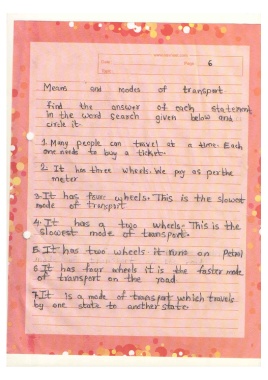 Page 6
Means and modes of transport
find the answer of each statement
in the word search given below and
circle it.
1. Many people can travel at a time. Each
one needs to buy a ticket.
2. It has three wheels. We pay as per the
meter
3. It has four wheels. This is the slowest
mode of transport
4. It has a two wheels. This is the
slowest mode of transport.
5. It has two wheels it runs on Petrol
6. It has four wheels it is the faster mode
of transport on the road.
7. It is a mode of transport which travels
by one state to another state.